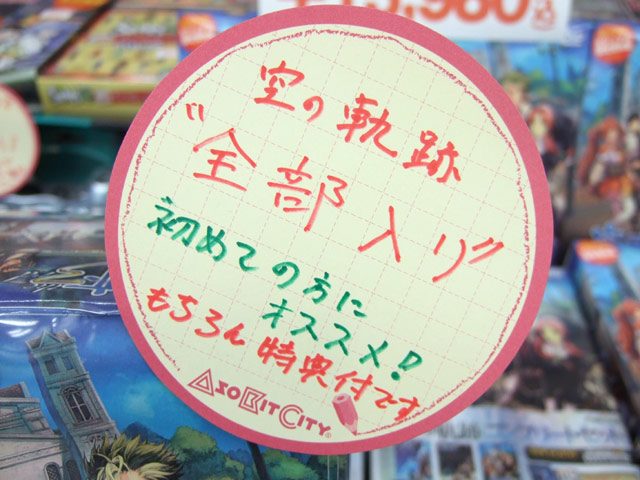 空の軌跡
"全部入り"
初めての方に
オススメ!
もちろん特典付です
ASOBITCITY